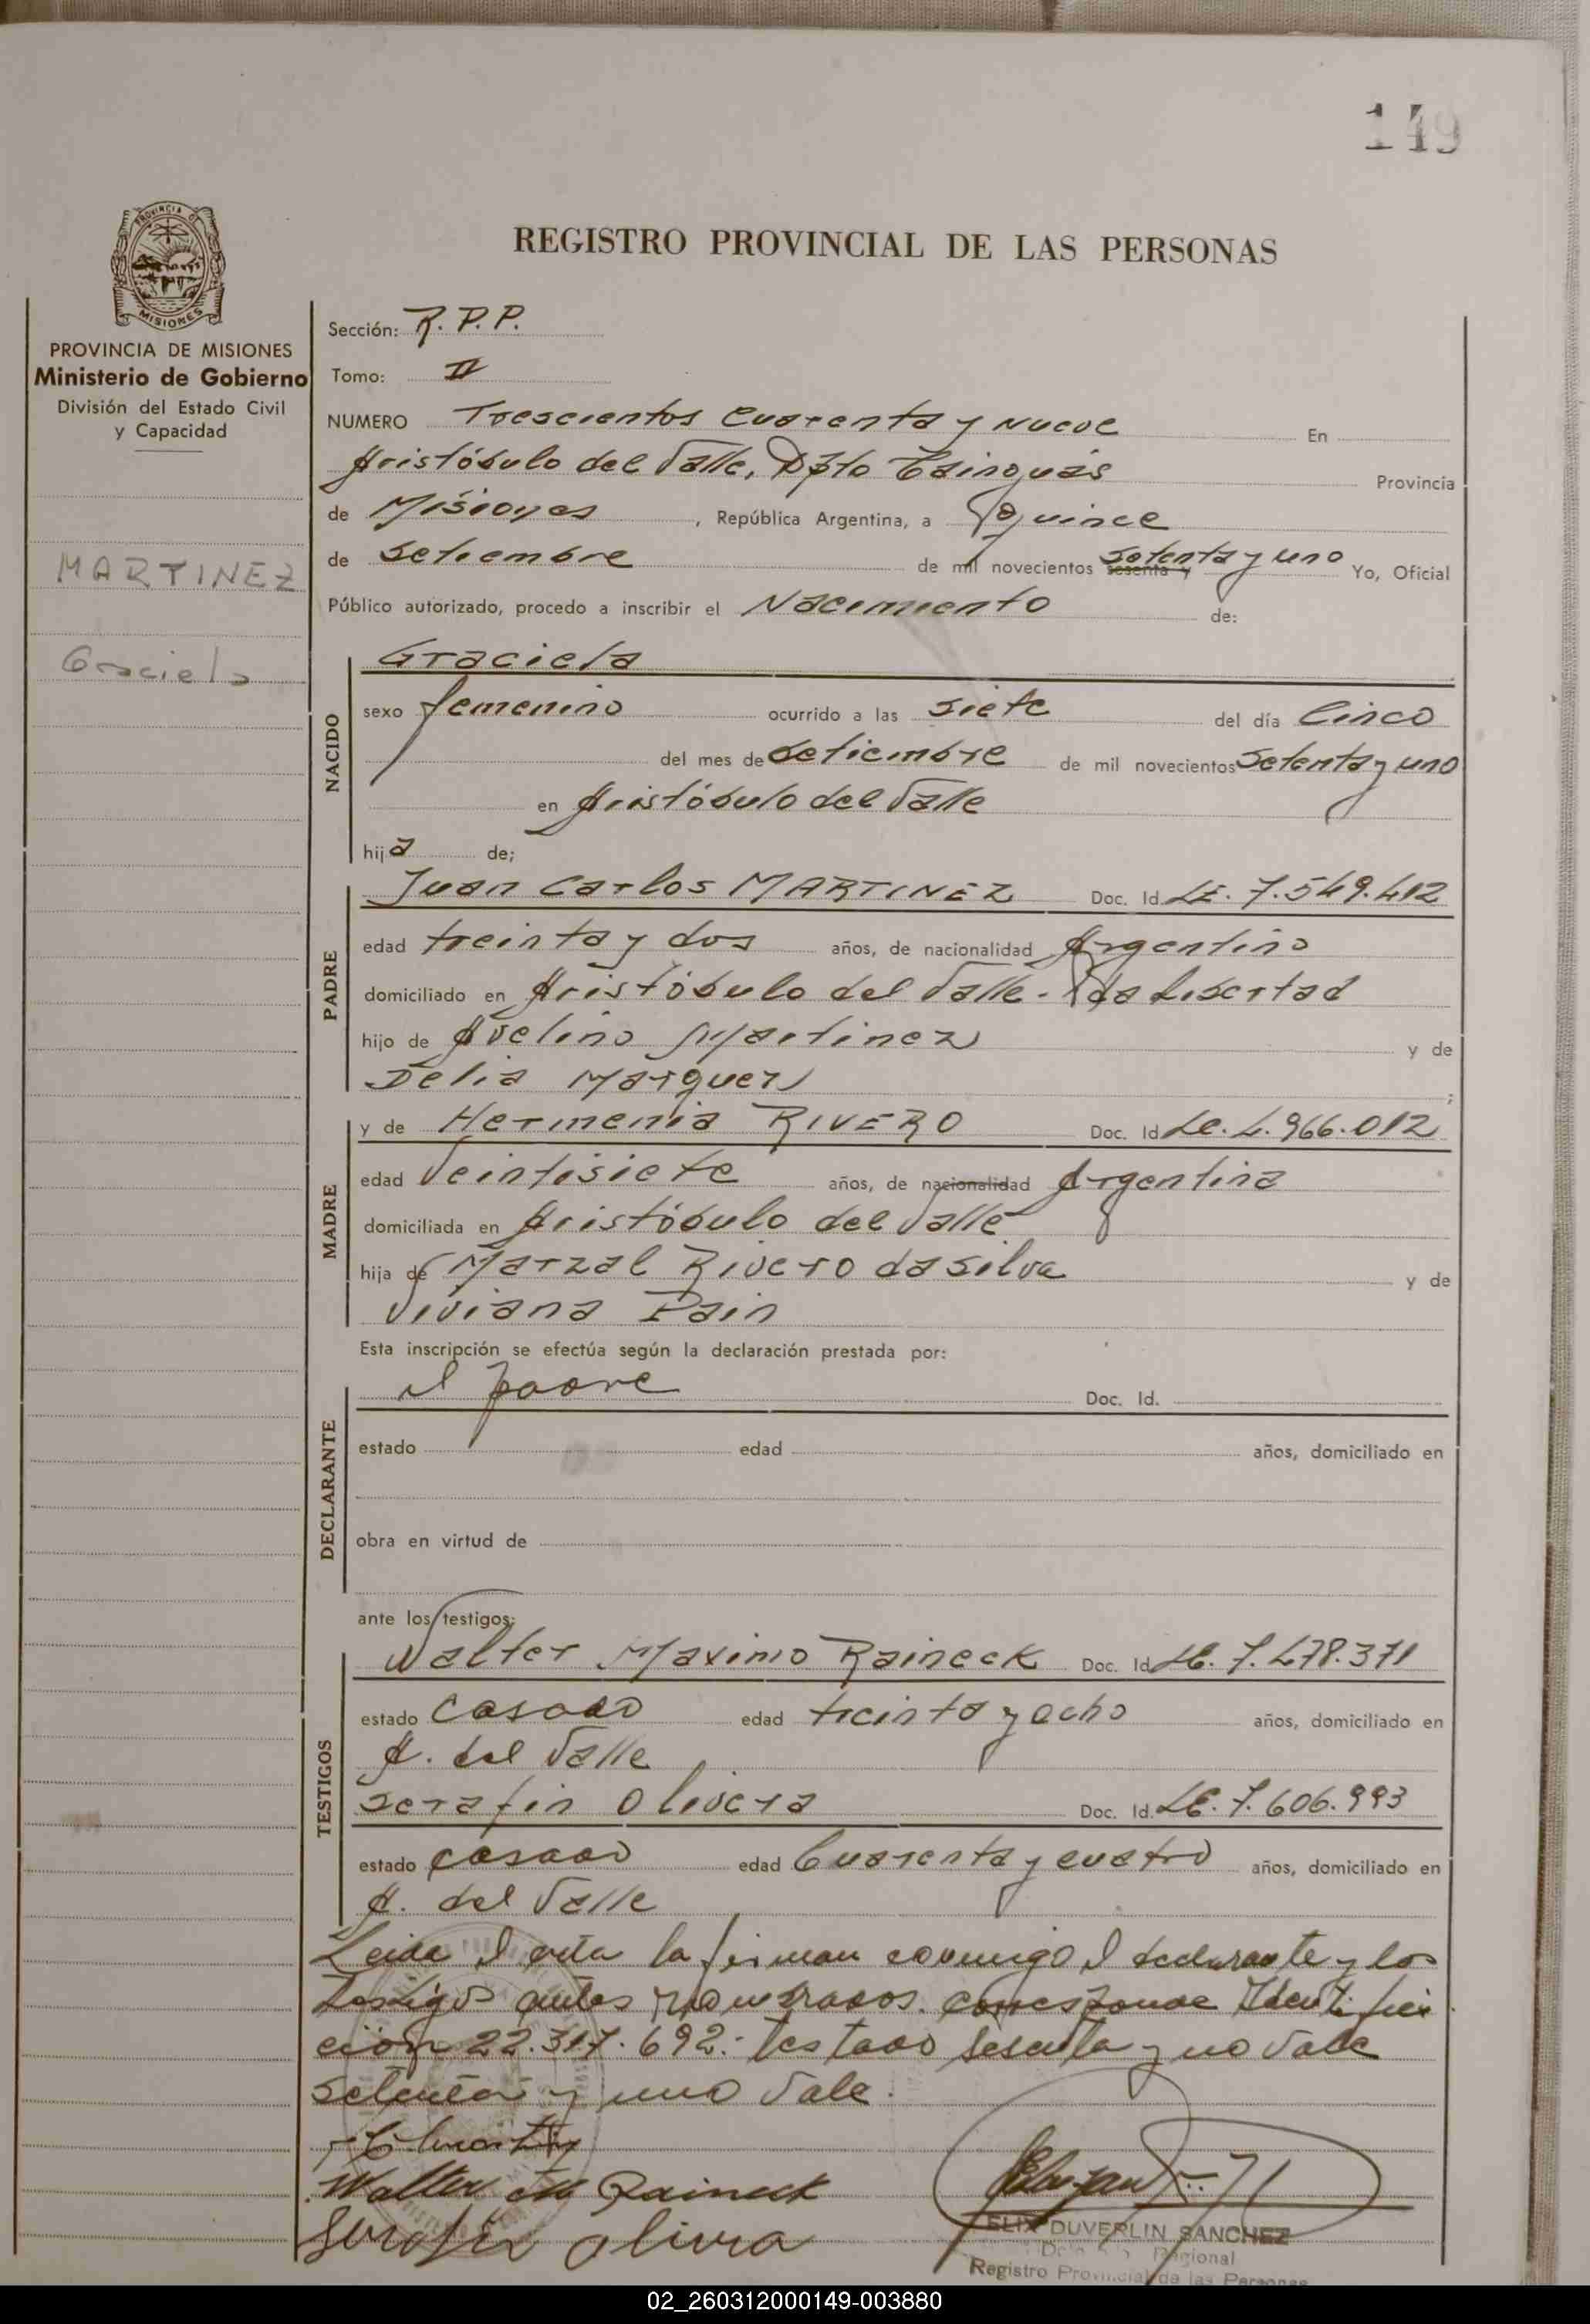 149
REGISTRO PROVINCIAL DE LAS PERSONAS
PROVINCIA DE
MISIONES
PROVINCIA DE MISIONES
Ministerio de Gobierno
División del Estado Civil
y Capacidad
MARTINEZ
Graciela
Sección: R. P. P.
Tomo: II
NUMERO Trescientos Cuarenta y Nueve En
Aristóbulo del Valle, Dpto Cainguás Provincia
de Misiones, República Argentina, a Quince
de Setiembre de mil novecientos sesenta y setenta y uno Yo, Oficial
Público autorizado, procedo a inscribir el Nacimiento de:
NACIDO
Graciela
sexo femenino ocurrido a las siete del día Cinco
del mes de Setiembre de mil novecientos Setenta y uno
en Aristóbulo del Valle
hija de;
PADRE
Juan Carlos MARTINEZ Doc. Id. LE. 7.549.412
edad treinta y dos años, de nacionalidad Argentino
domiciliado en Aristóbulo del Valle - Pda Libertad
hijo de Avelino Martinez y de
Delia Marquez ;
MADRE
y de Hermenia RIVERO Doc. Id. LC. 4.966.012
edad Veintisiete años, de nacionalidad Argentina
domiciliada en Aristóbulo del Valle
hija de Marzal Rivero da Silva y de
Viviana Pain
Esta inscripción se efectúa según la declaración prestada por:
DECLARANTE
el padre Doc. Id.
estado edad años, domiciliado en
obra en virtud de
ante los testigos:
TESTIGOS
Walter Maximo Raineck Doc. Id. LE. 7.478.371
estado Casado edad treinta y ocho años, domiciliado en
A. del Valle
Serafin Olivera Doc. Id. LE. 7.606.993
estado casado edad Cuarenta y cuatro años, domiciliado en
A. del Valle
Leida el acta la firman conmigo el declarante y los
testigos antes nombrados. corresponde Identifica
ción 22.317.692. testado sesenta y no vale
setenta y uno vale.
Walter M Raineck
Serafin Olivera
FELIX DUVERLIN SANCHEZ
Regional
Registro Provincial de las Personas
02_260312000149-003880